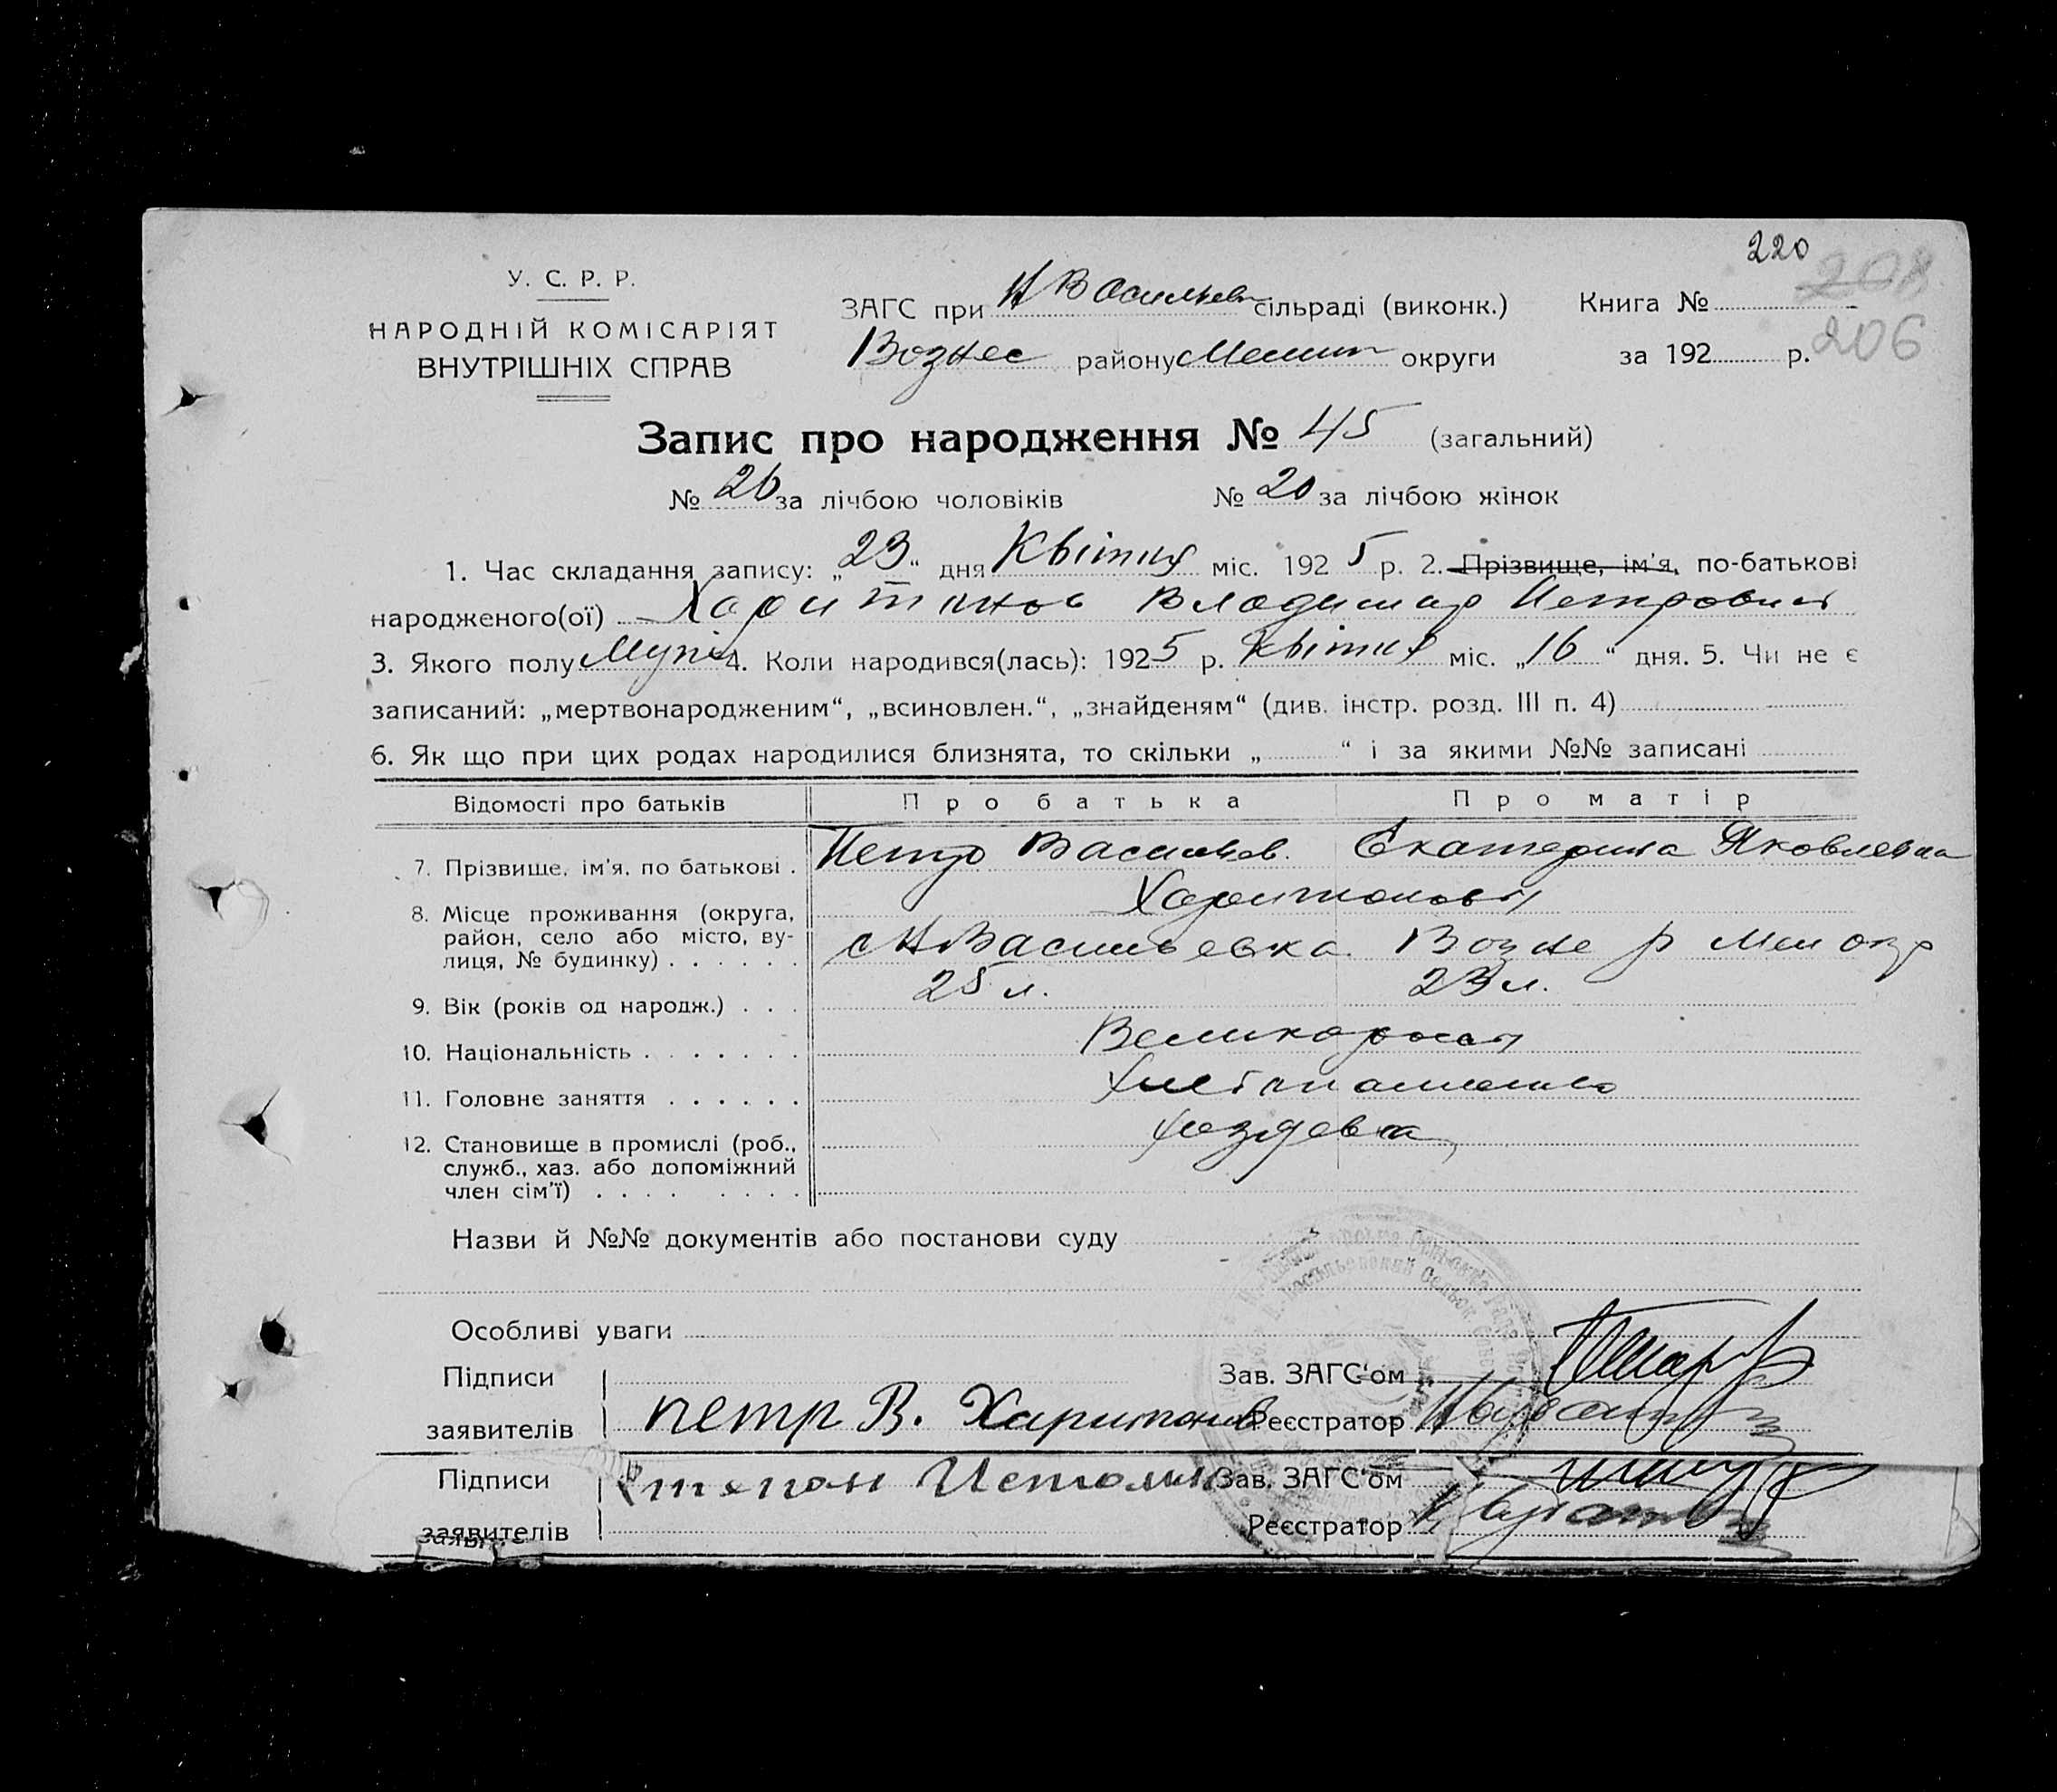 220
208
У. С. Р. Р.
НАРОДНІЙ КОМІСАРІЯТ
ВНУТРІШНІХ СПРАВ
ЗАГС при Н Васильев сільраді (виконк.) Книга №
Вознес району Мелит округи за 192 р.
206
Запис про народження № 45 (загальний)
№ 26 за лічбою чоловіків № 20 за лічбою жінок
1. Час складання запису: „23“ дня Квітня міс. 1925 р. 2. Прізвище, ім'я, по-батькові
народженого(ої) Харитонов Владимир Петрович
3. Якого полу 4. Коли народився(лась): 1925 р. Квітня міс. „16“ дня. 5. Чи не є
записаний: „мертвонародженим“, „всиновлен.“, „знайденям“ (див. інстр. розд. III п. 4)
6. Як що при цих родах народилися близнята, то скільки „ “ і за якими №№ записані
Відомості про батьків Про батька Про матір
7. Прізвище, ім'я, по батькові . Петр Васильев. Екатерина Яковлевна
Харитоновы
8. Місце проживання (округа,
район, село або місто, ву-
лиця, № будинку) . . . . . . с Н Васильевка. Возне р Мел окр
9. Вік (років од народж.) . . . 25 л. 23 л.
10. Національність . . . . . . . Великороссы
11. Головне заняття . . . . . .
12. Становище в промислі (роб.,
служб., хаз. або допоміжний
член сім'ї) . . . . . . . .
Назви й №№ документів або постанови суду
Особливі уваги
Підписи Зав. ЗАГС'ом
заявителів Петр В. Харитонов Реєстратор
Підписи Степан Истомин Зав. ЗАГС'ом
заявителів Реєстратор